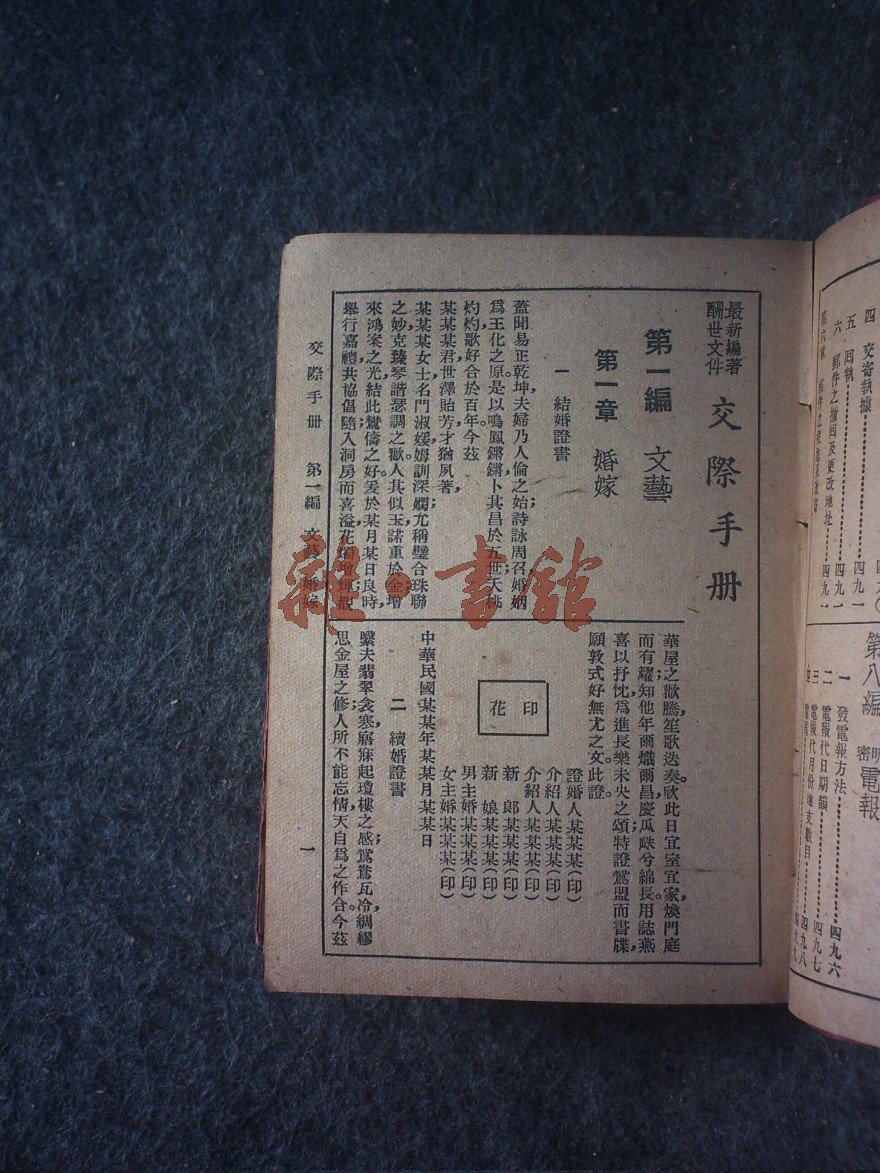 最新編著
酬世文件
交際手册
第一編 文藝
第一章 婚嫁
一 結婚證書
蓋聞易正乾坤,夫婦乃人倫之始;詩詠周召,婚姻
爲王化之原。是以鳴鳳鏘鏘,卜其昌於五世;夭桃
灼灼,歌好合於百年。今茲
某某某君,世澤貽芳,才猶夙著,
某某某女士,名門淑媛,姆訓深嫻,尤稱璧合珠聯
之妙,克臻琴諧瑟調之歡,人其似玉,諾重於金,增
來鴻案之光,結此鸞儔之好。爰於某月某日良時,
舉行嘉禮,共協倡隨,入洞房而喜溢花
華屋之歡騰,笙歌迭奏。欣此日宜室宜家,煥門庭
而有耀;知他年爾熾爾昌,慶瓜瓞兮綿長。用誌燕
喜,以抒忱,爲進長樂未央之頌;特證鴛盟而書牒,
願敦式好無尤之文。此證。
證婚人某某某(印)
介紹人某某某(印)
介紹人某某某(印)
新 郎某某某(印)
新 娘某某某(印)
男主婚某某某(印)
女主婚某某某(印)
印花
中華民國某某年某某月某某日
二 續婚證書
繫夫翡翠衾寒,寤寐起瓊樓之感;鴛鴦瓦冷,綢繆
思金屋之修。人所不能忘情,天自爲之作合。今茲
交際手册 第一編 文藝 婚嫁
一
四 交寄執據 四九〇
五 回執 四九一
六 郵件之撤回及更改地址 四九一
第八編 明密電報
一 發電報方法 四九六
二 電報代日期韻 四九七
三 電報代月份地支數目 四九八
雜·書舘